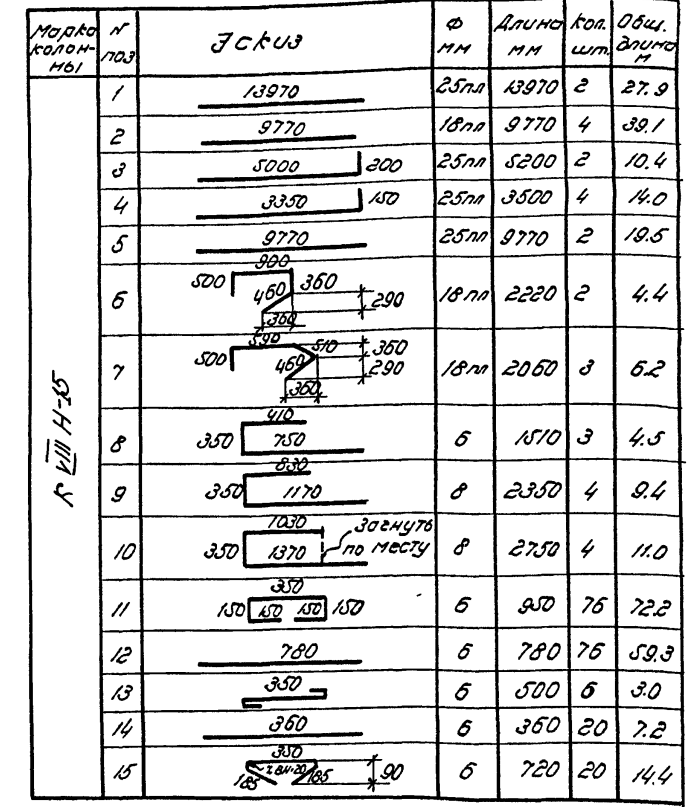 Марка колон- ны | N поз | Эскиз | Ф мм | Длина мм | Кол. шт. | Общ. длина м
К VIII Н-15
1 | 13970 | 25пл | 13970 | 2 | 27.9
2 | 9770 | 18пл | 9770 | 4 | 39.1
3 | 5000 200 | 25пл | 5200 | 2 | 10.4
4 | 3350 150 | 25пл | 3500 | 4 | 14.0
5 | 9770 | 25пл | 9770 | 2 | 19.5
6 | 900 500 460 360 290 360 | 18пл | 2220 | 2 | 4.4
7 | 590 510 500 460 360 290 360 | 18пл | 2060 | 3 | 6.2
8 | 410 350 750 | 6 | 1510 | 3 | 4.5
9 | 830 350 1170 | 8 | 2350 | 4 | 9.4
10 | 1030 350 1370 Загнуть по месту | 8 | 2750 | 4 | 11.0
11 | 350 150 150 150 150 | 6 | 950 | 76 | 72.2
12 | 780 | 6 | 780 | 76 | 59.3
13 | 350 | 6 | 500 | 6 | 3.0
14 | 360 | 6 | 360 | 20 | 7.2
15 | 350 185 185 90 | 6 | 720 | 20 | 14.4